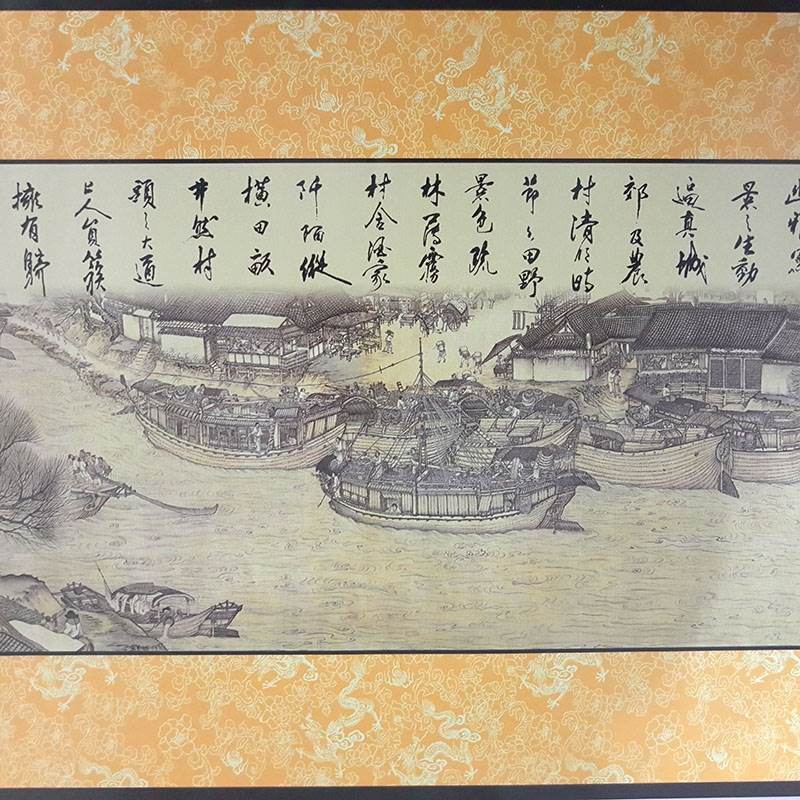 景之生動
逼真城
郊及農
村清明時
節之田野
景色疏
林薄霧
村舍酒家
阡陌縱
橫田畝
井然村
頭之大道
上人員簇
擁有轎